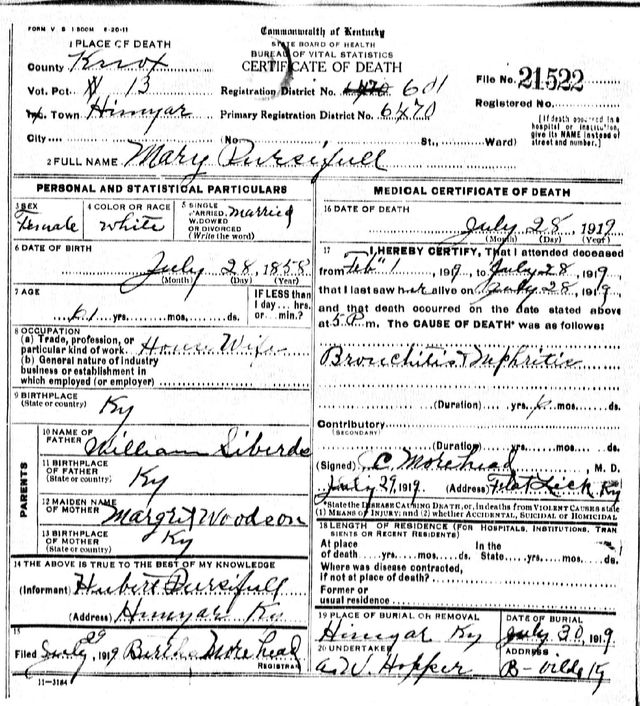 FORM V S 1 500M 6-20-11
Commonwealth of Kentucky
STATE BOARD OF HEALTH
BUREAU OF VITAL STATISTICS
CERTIFICATE OF DEATH
1 PLACE OF DEATH
County Knox
Vot. Pct 13
Town Himyar
City
Registration District No. 601
Primary Registration District No. 6470
File No. 21522
Registered No.
[If death occurred in a hospital or institution, give its NAME instead of street and number.]
(No. St., Ward)
2 FULL NAME Mary Pursifull
PERSONAL AND STATISTICAL PARTICULARS
3 SEX
Female
4 COLOR OR RACE
White
5 SINGLE
MARRIED
WIDOWED
OR DIVORCED
(Write the word)
Married
6 DATE OF BIRTH
July 28, 1858
(Month) (Day) (Year)
7 AGE
61 yrs. mos. ds.
IF LESS than
1 day... hrs.
or... min.?
8 OCCUPATION
(a) Trade, profession, or
particular kind of work House Wife
(b) General nature of industry
business or establishment in
which employed (or employer)
9 BIRTHPLACE
(State or country)
Ky
PARENTS
10 NAME OF
FATHER William Siberds
11 BIRTHPLACE
OF FATHER
(State or country) Ky
12 MAIDEN NAME
OF MOTHER Margrit Woodson
13 BIRTHPLACE
OF MOTHER
(State or country) Ky
14 THE ABOVE IS TRUE TO THE BEST OF MY KNOWLEDGE
(Informant) Hubert Pursifull
(Address) Himyar Ky
15
Filed July 29, 1919 Bertha Morehead
REGISTRAR
11-3184
MEDICAL CERTIFICATE OF DEATH
16 DATE OF DEATH
July 28, 1919
(Month) (Day) (Year)
17 I HEREBY CERTIFY, That I attended deceased
from Feb 1, 1919, to July 28, 1919,
that I last saw her alive on July 28, 1919
and that death occurred on the date stated above
at 5 P m. The CAUSE OF DEATH* was as follows:
Bronchitis & Nephritis
(Duration) yrs. 6 mos. ds.
Contributory
(SECONDARY)
(Duration) yrs. mos. ds.
(Signed) C. Morehead, M. D.
July 29 1919 (Address) Flat Lick Ky
*State the DISEASE CAUSING DEATH, or, in deaths from VIOLENT CAUSES state
(1) MEANS OF INJURY; and (2) whether ACCIDENTAL, SUICIDAL OR HOMICIDAL
18 LENGTH OF RESIDENCE (FOR HOSPITALS, INSTITUTIONS, TRAN
SIENTS OR RECENT RESIDENTS)
At place
of death yrs. mos. ds.
In the
State yrs. mos. ds.
Where was disease contracted,
if not at place of death?
Former or
usual residence
19 PLACE OF BURIAL OR REMOVAL
Himyar Ky
DATE OF BURIAL
July 30, 1919
20 UNDERTAKER
W. Hopper
ADDRESS
B-ville Ky